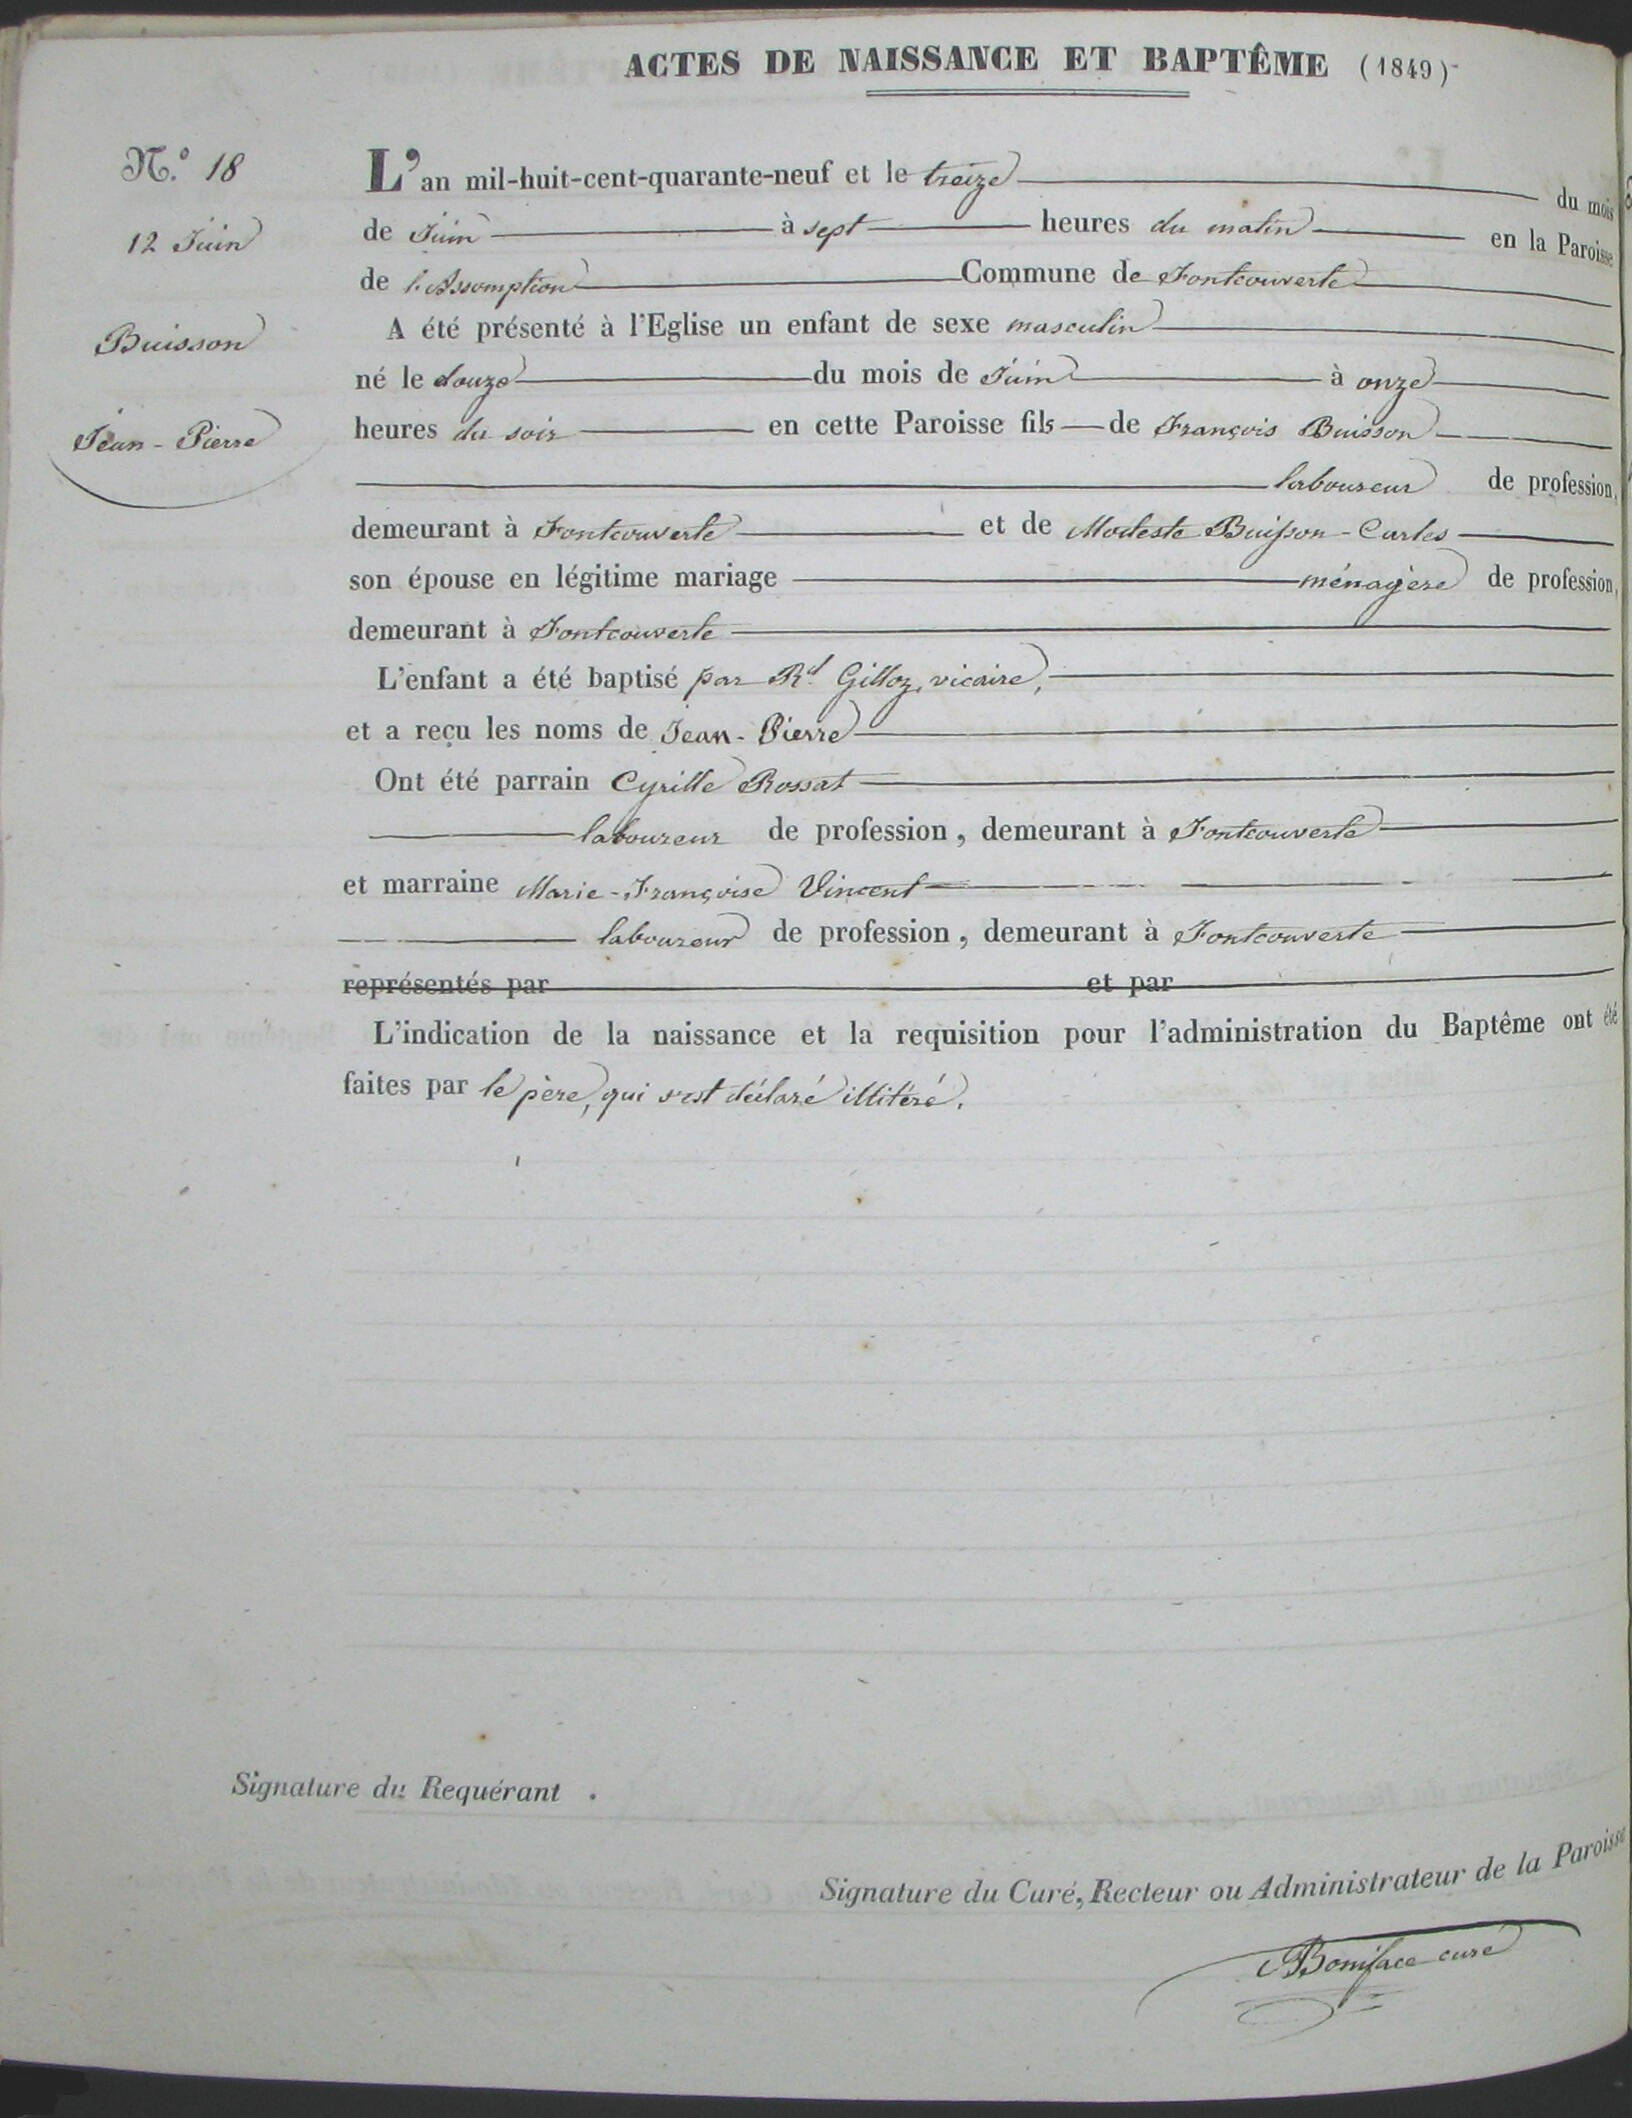 ACTES DE NAISSANCE ET BAPTÊME (1849)
N.º 18
12 Juin
Buisson
Jean-Pierre
L'an mil-huit-cent-quarante-neuf et le treize du mois
de Juin à sept heures du matin en la Paroisse
de l'Assomption Commune de Fontcouverte
A été présenté à l'Eglise un enfant de sexe masculin
né le douze du mois de Juin à onze
heures du soir en cette Paroisse fils de François Buisson
laboureur de profession,
demeurant à Fontcouverte et de Modeste Buisson-Carles
son épouse en légitime mariage ménagère de profession,
demeurant à Fontcouverte
L'enfant a été baptisé par Rd Gilloz, vicaire,
et a reçu les noms de Jean-Pierre
Ont été parrain Cyrille Rossat
laboureur de profession, demeurant à Fontcouverte
et marraine Marie-Françoise Vincent
laboureur de profession, demeurant à Fontcouverte
représentés par et par
L'indication de la naissance et la requisition pour l'administration du Baptême ont été
faites par le père, qui s'est déclaré illitéré.
Signature du Requérant .
Signature du Curé, Recteur ou Administrateur de la Paroisse
Boniface curé